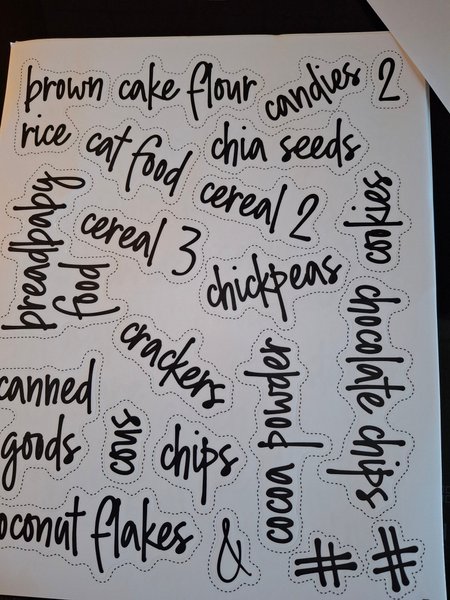 brown
rice
cake flour
candies 2
cat food
chia seeds
cereal 2
cookies
breadbaby
food
cereal 3
chickpeas
crackers
chocolate chips
canned
goods
cons
chips
cocoa powder
oconut flakes
&
#
#